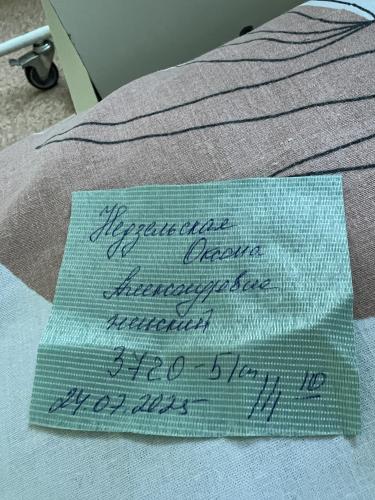 Недзельская
Оксана
Александровна
женский
3720-51см
24.07.2025 11 10